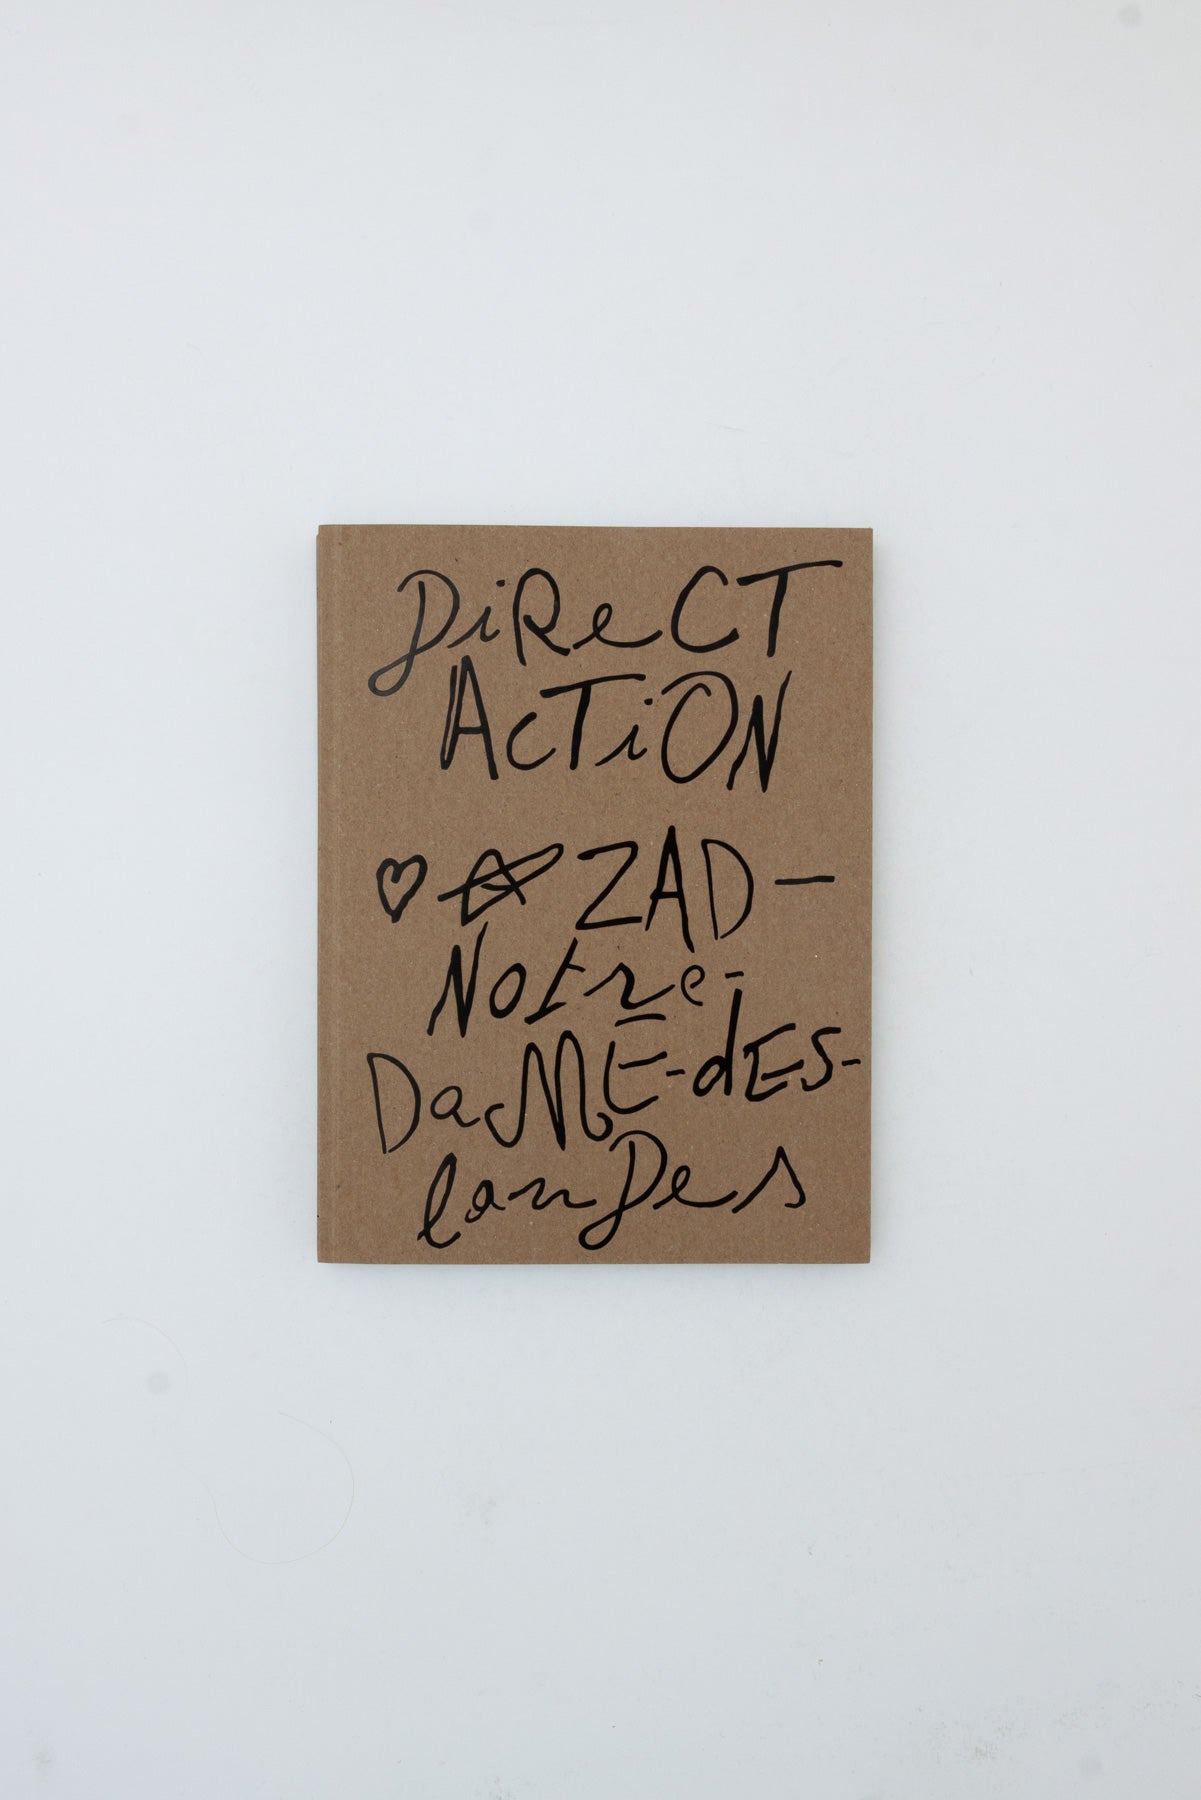 DiReCT
ACTiON
♡ ☆ ZAD-
Notre-
DaME-dES-
lanDes